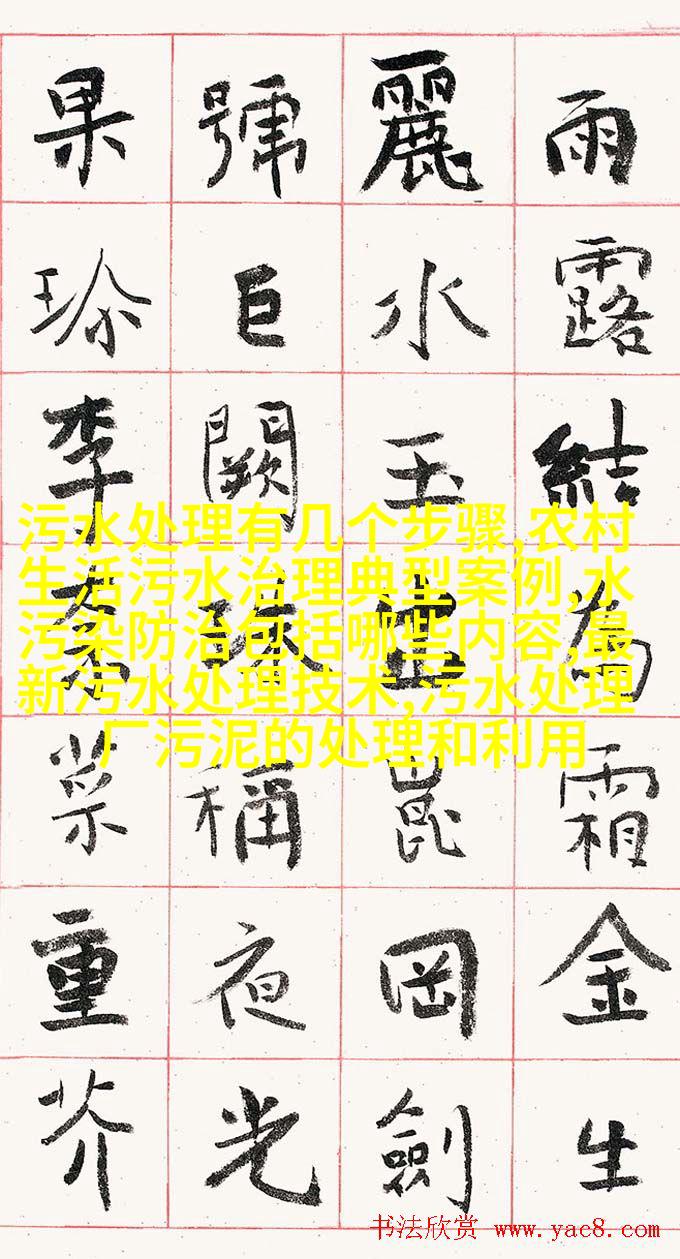 雨露結為霜金生
麗水玉出崑岡劍
號巨闕珠稱夜光
果珍李柰菜重芥
污水处理有几个步骤,农村
生活污水治理典型案例,水
污染防治包括哪些内容,最
新污水处理技术,污水处理
厂污泥的处理和利用
书法欣赏 www.yac8.com